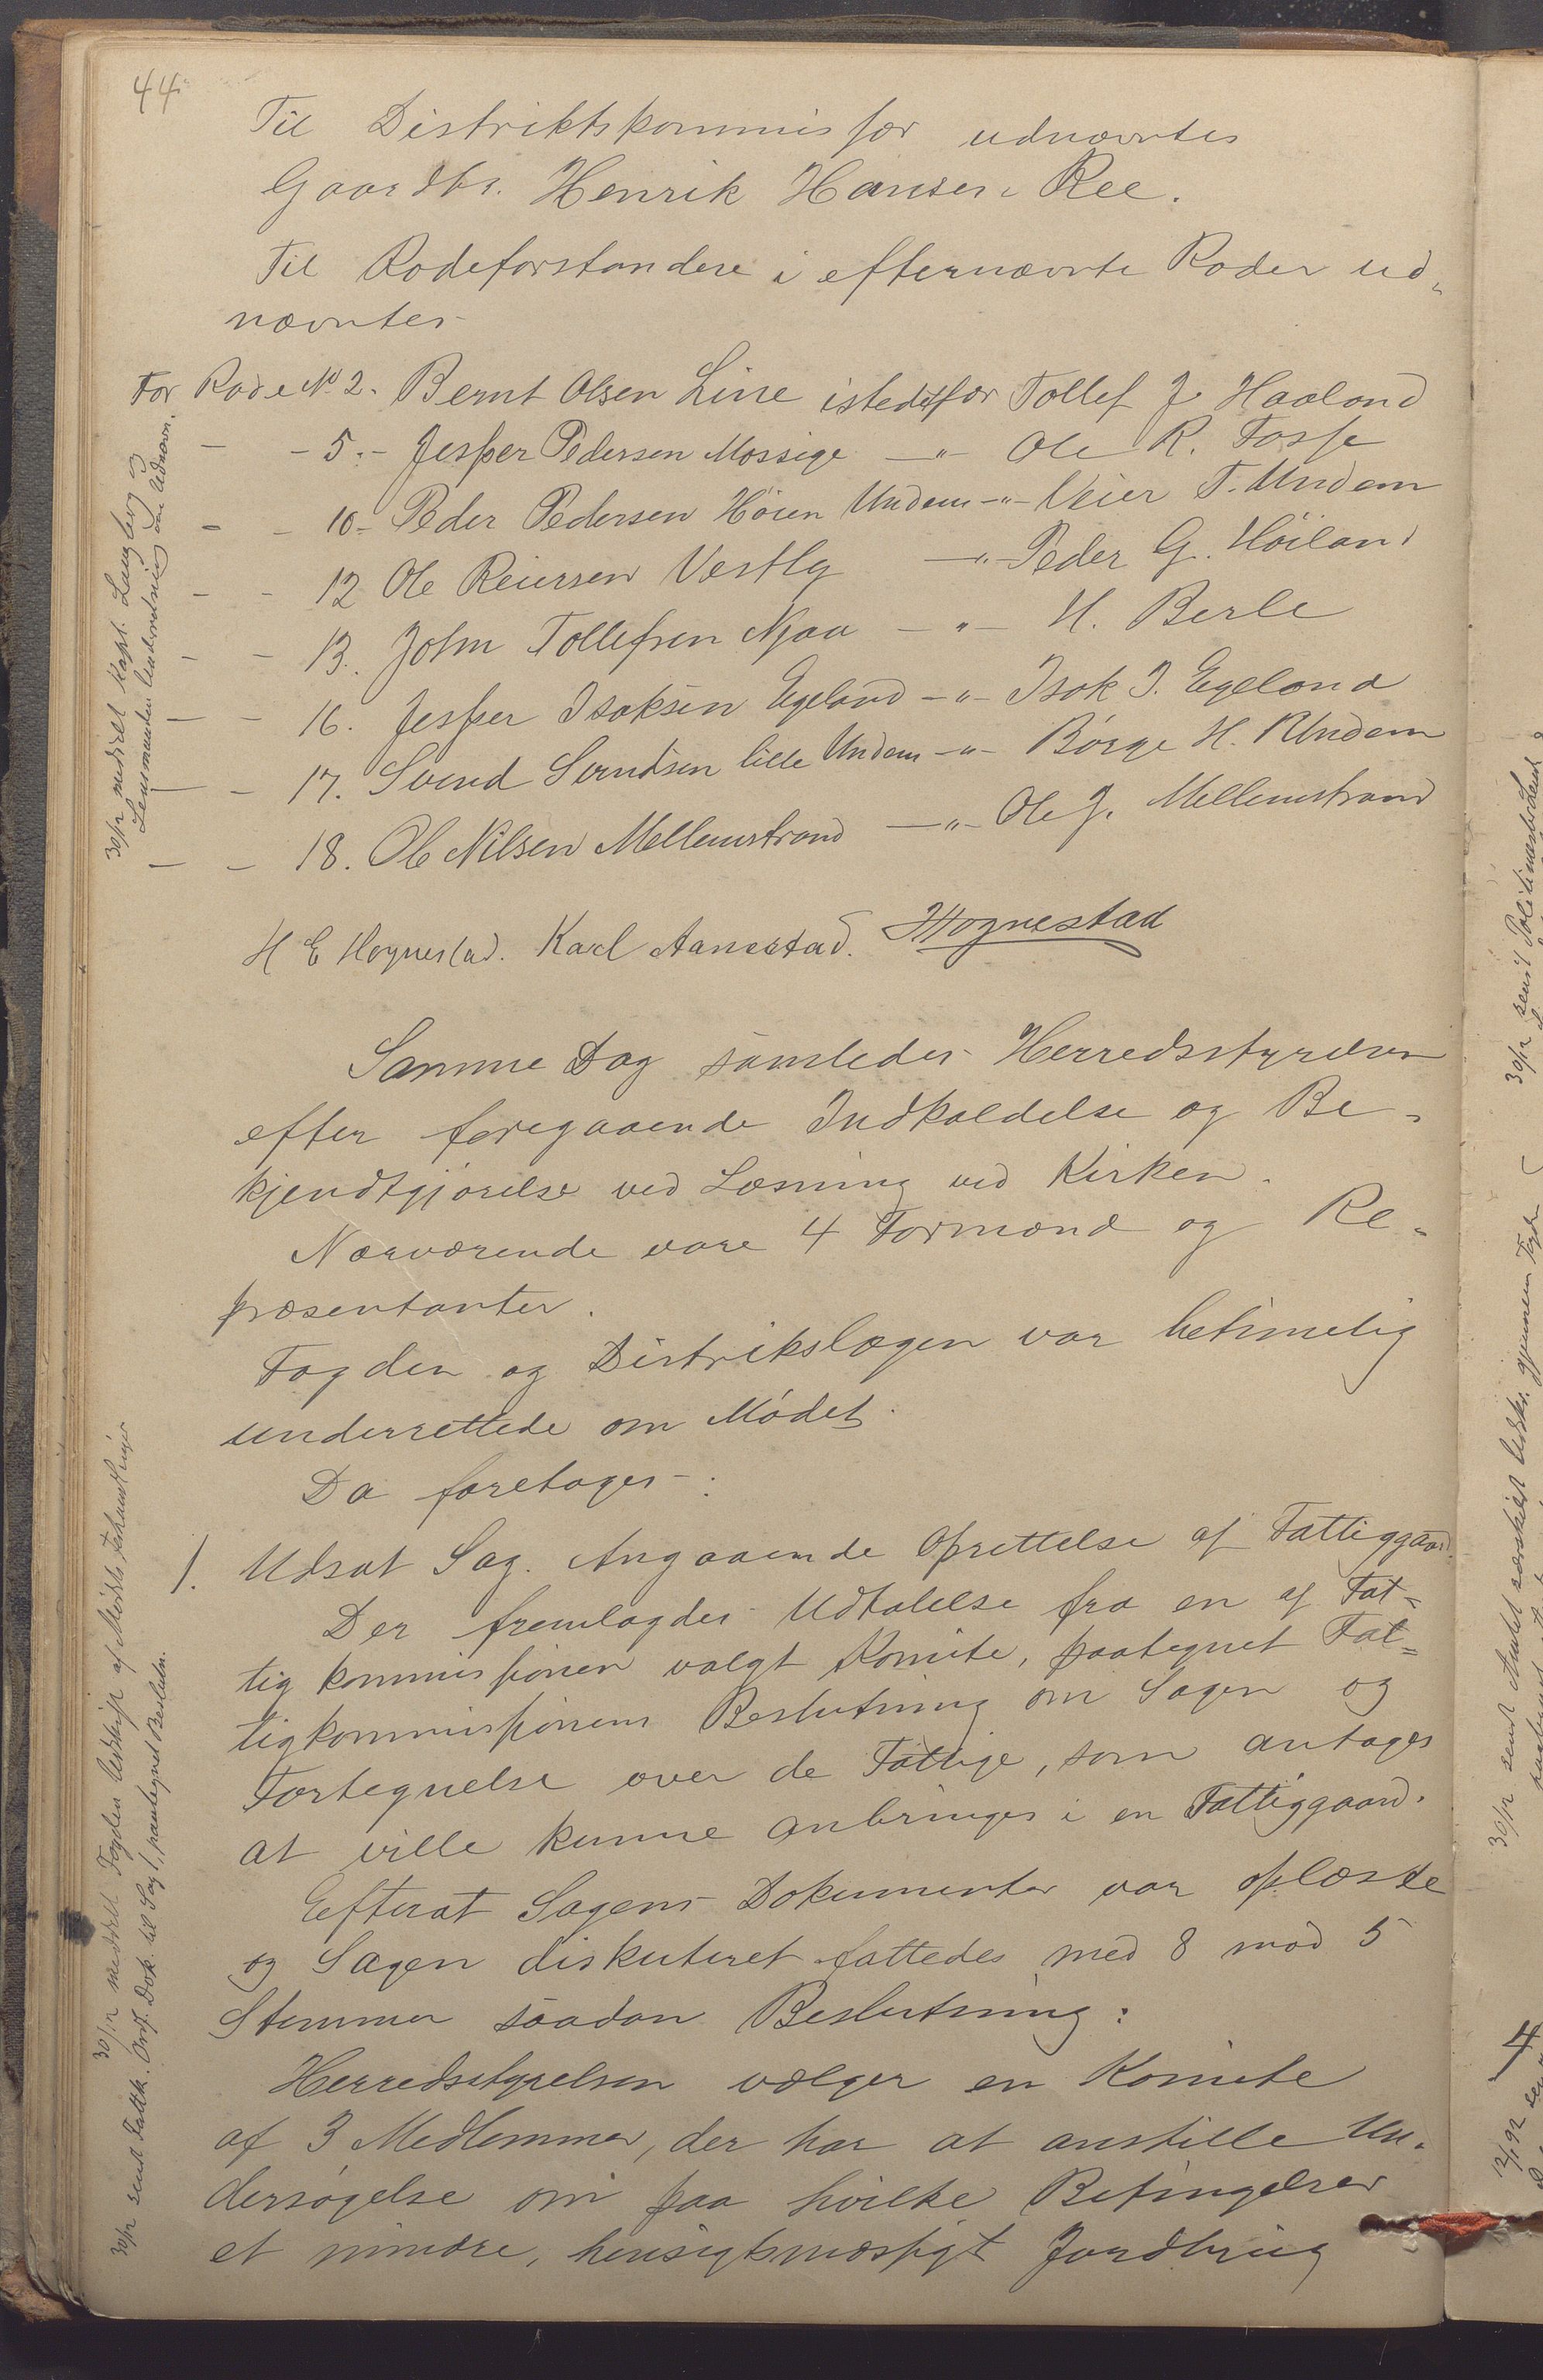 44
Til Distriktskommissær udnævntes
Gaardbr. Henrik Hansen Ree.
Til Rodeforstandere i efternævnte Roder ud„
nævntes
For Rode No 2. Bernt Olsen Line istedetfor Tollef J. Haaland
— - 5.- Jesper Pedersen Mossige —„— Ole R. Fosse
- - 10- Peder Pedersen Höien Undem -„- Veier T. Undem
- - 12 Ole Reiersen Vestly —„- Peder G. Höiland
- - 13. John Tollefsen Njaa -„- H. Berle
— - 16. Jesper Isaksen Egeland -„- Isak J. Egeland
— - 17. Svend Svendsen lille Undem -„- Börge H. Undem
— - 18. Ole Nilsen Mellemstrand —„- Ole J. Mellemstrand
30/12 meddelt Kapt. Langberg og
Lensmanden Underretning om Udnævn.
H E Hognestad. Karl Aanestad. Hognestad
Samme Dag samledes Herredsstyrelsen
efter foregaaende Indkaldelse og Be-
kjendtgjörelse ved Læsning ved Kirken.
Nærværende vare 4 Formænd og Re-
præsentanter.
Fogden og Distrikslægen var betimelig
underrettede om Mödet.
Da foretoges:
1. Udsat Sag. Angaaende Oprettelse af Fattiggaard.
Der fremlagdes Udtalelse fra en af Fat-
tigkommissionen valgt Komite, paategnet Fat-
tigkommissionens Beslutning om Sagen og
Fortegnelse over de Fattige, som antages
at ville kunne anbringes i en Fattiggaard.
Efterat Sagens Dokumenter var oplæste
og Sagen diskuteret fattedes med 8 mod 5
Stemmer saadan Beslutning:
Herredsstyrelsen vælger en Komite
af 3 Medlemmer, der har at anstille Un-
dersögelse om paa hvilke Betingelser
et mindre, hensigtsmæssigt Jordbrug
30/12 meddelt Fogden Udskrift af Mödets Forhandlinger
30/12 sendt Fattk. Ordf. Dok. til Sag 1, paategnet Beslutn.